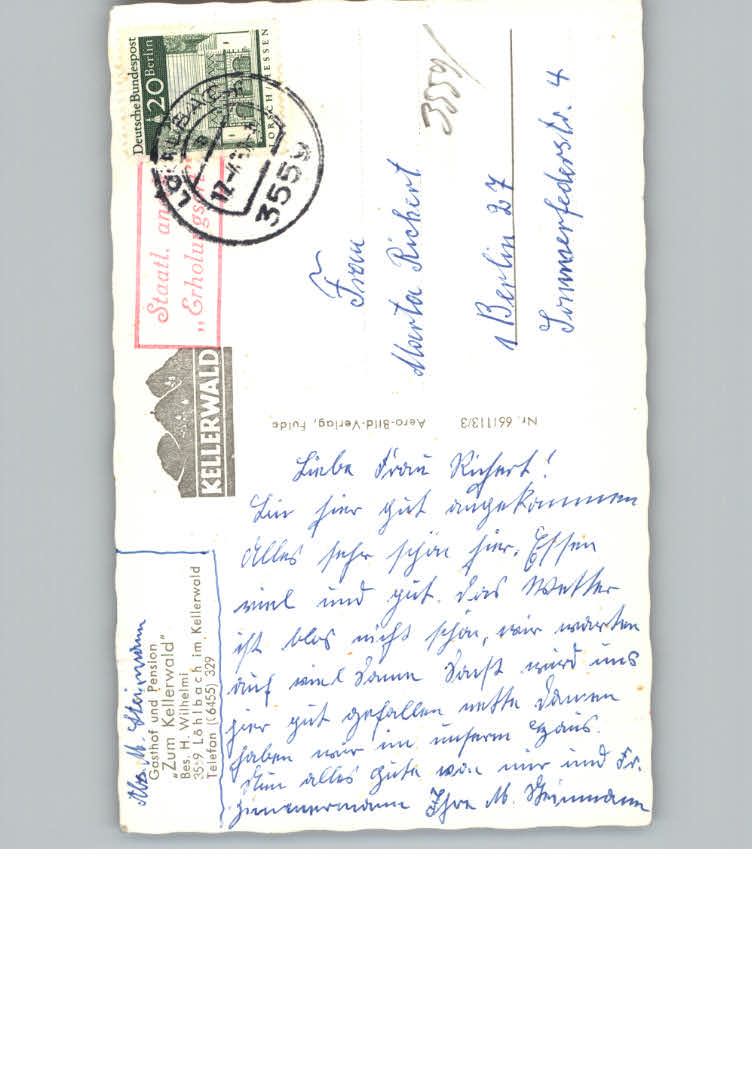 Abs. M. Steinmann
Gasthof und Pension
"Zum Kellerwald"
Bes. H. Wilhelmi
3559 Löhlbach im Kellerwald
Telefon (06455) 329
Liebe Frau Richert!
Bin hier gut angekommen
Alles sehr schön hier. Essen
viel und gut. Das Wetter
ist blos nicht schön, wir warten
auf viel Sonne Sonst wird uns
hier gut gefallen nette Damen
haben wir im unserem Haus.
Nun alles gute von mir und Fr.
Zimmermann Ihre M. Steinmann
KELLERWALD
Staatl. an
„Erholungs
Deutsche Bundespost
20 Berlin
LORSCH/HESSEN
LÖHLBACH
3559
Nr. 661113/3 Aero-Bild-Verlag, Fulda
3559/
Frau
Marta Richert
1 Berlin 27
Sommerfelderstr. 4